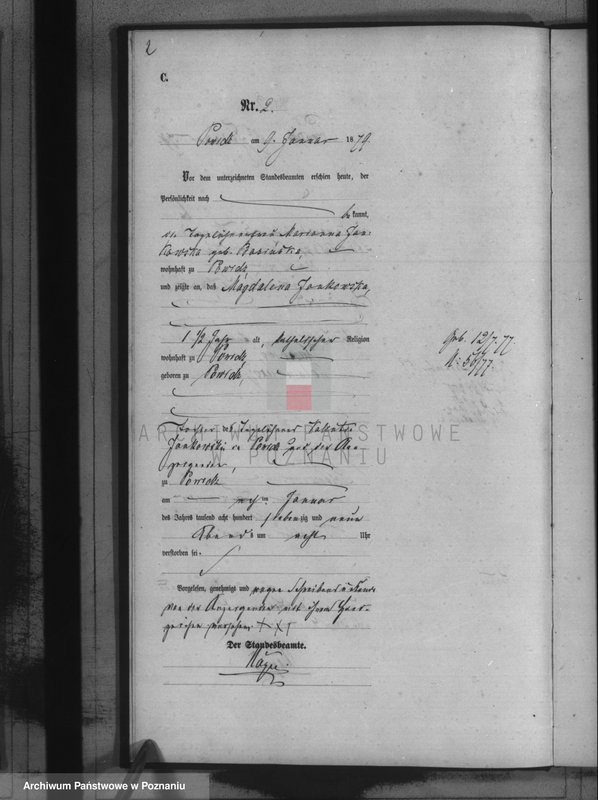 2
C.
Nr. 2.
Powidz am 9. Januar 1879.
Vor dem unterzeichneten Standesbeamten erschien heute, der
Persönlichkeit nach
be kannt,
die Tagelöhnerfrau Marianna Jan-
kowska geb.
wohnhaft zu Powidz
und zeigte an, daß Magdalena Jankowska,
1 1/2 Jahr alt, katholischer Religion
wohnhaft zu Powidz
geboren zu Powidz,
Geb. 12/7. 77.
N: 56/77.
Tochter des Tagelöhners
Jankowski in Powidz und der An-
zeigenden,
ARCHIWUM PAŃSTWOWE
W POZNANIU
zu Powidz
am Januar
des Jahres tausend acht hundert siebenzig und neun
Abends um acht Uhr
verstorben sei.
Vorgelesen, genehmigt und wegen Schreibensunkunde
von der Anzeigenden mit ihrem Hand-
zeichen versehen. +++
Der Standesbeamte.
Archiwum Państwowe w Poznaniu